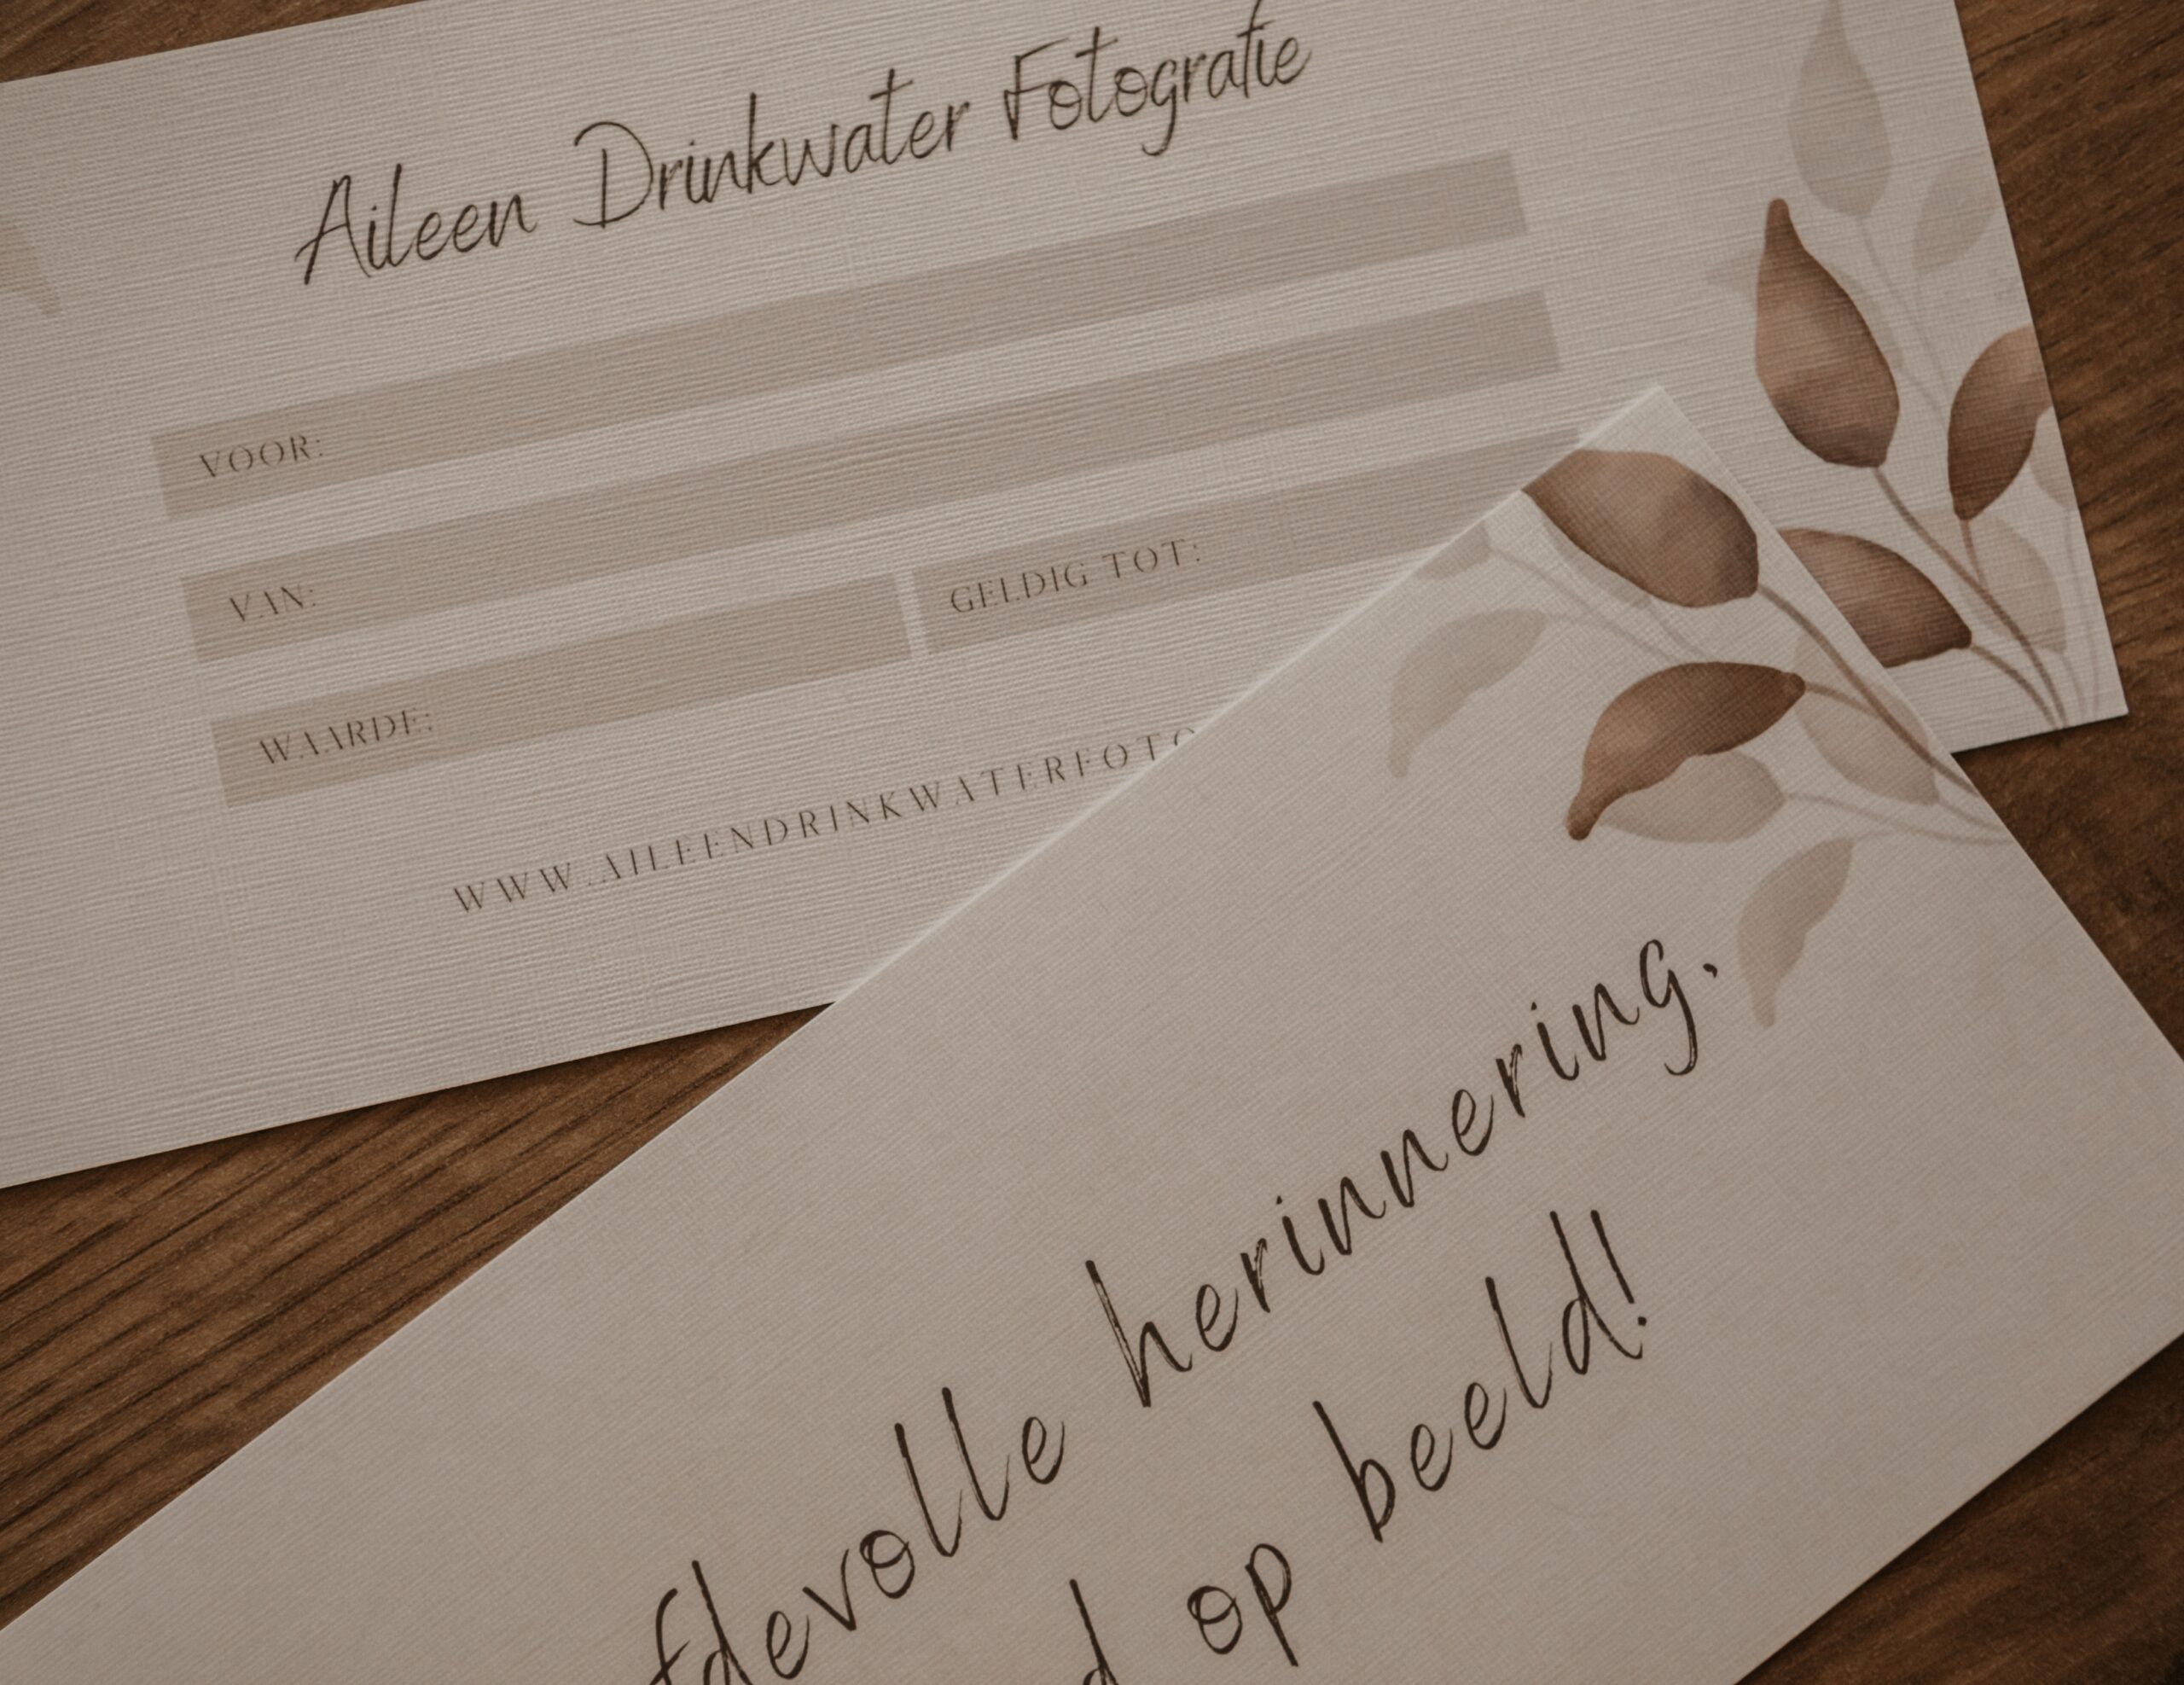 Aileen Drinkwater Fotografie
VOOR:
VAN:
WAARDE:
GELDIG TOT:
WWW.AILEENDRINKWATERFOTO
fdevolle herinnering.
d op beeld!